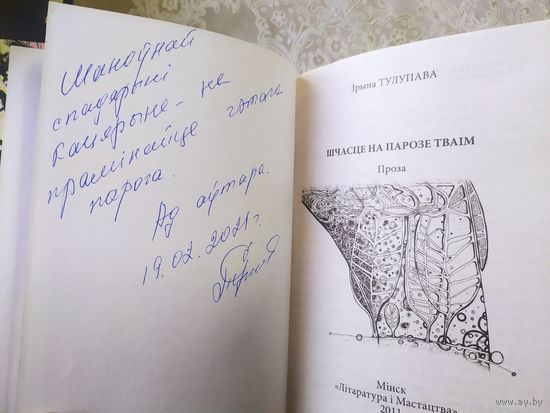 Шаноўнай
спадарыні
Кацярыне – не
прамінайце гэтага
парога.
Ад аўтара.
19.02.2021 г.
Ірына ТУЛУПАВА
ШЧАСЦЕ НА ПАРОЗЕ ТВАІМ
Проза
Мінск
«Літаратура і Мастацтва»
2011
www.ay.by